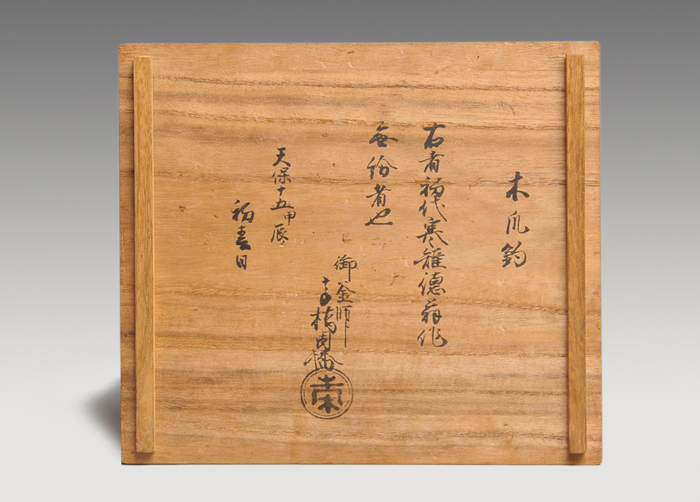 木瓜釣
右者初代寒雉德翁作
無紛者也
御釜師
高橋因幡
天保十五甲辰
初春日